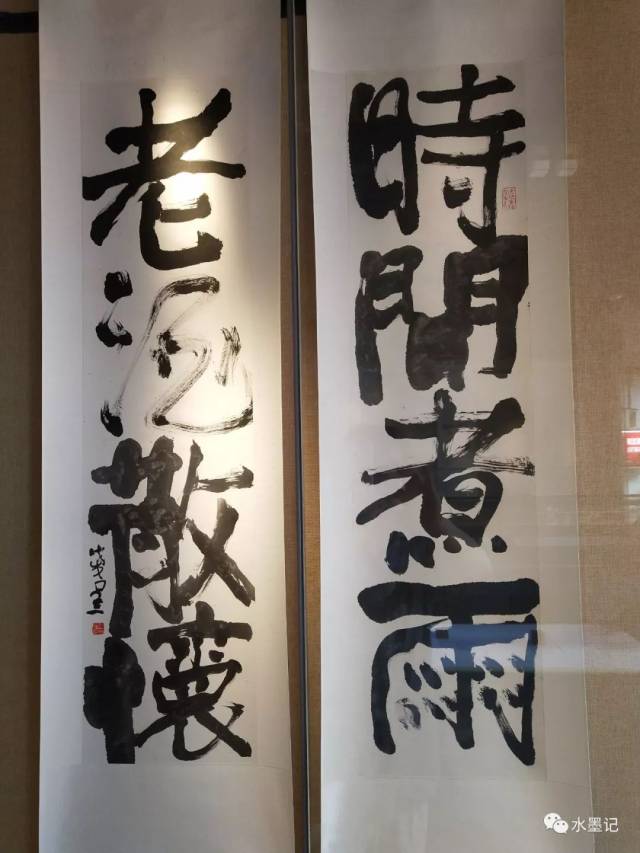 時間煮雨
老酒散懷
水墨记